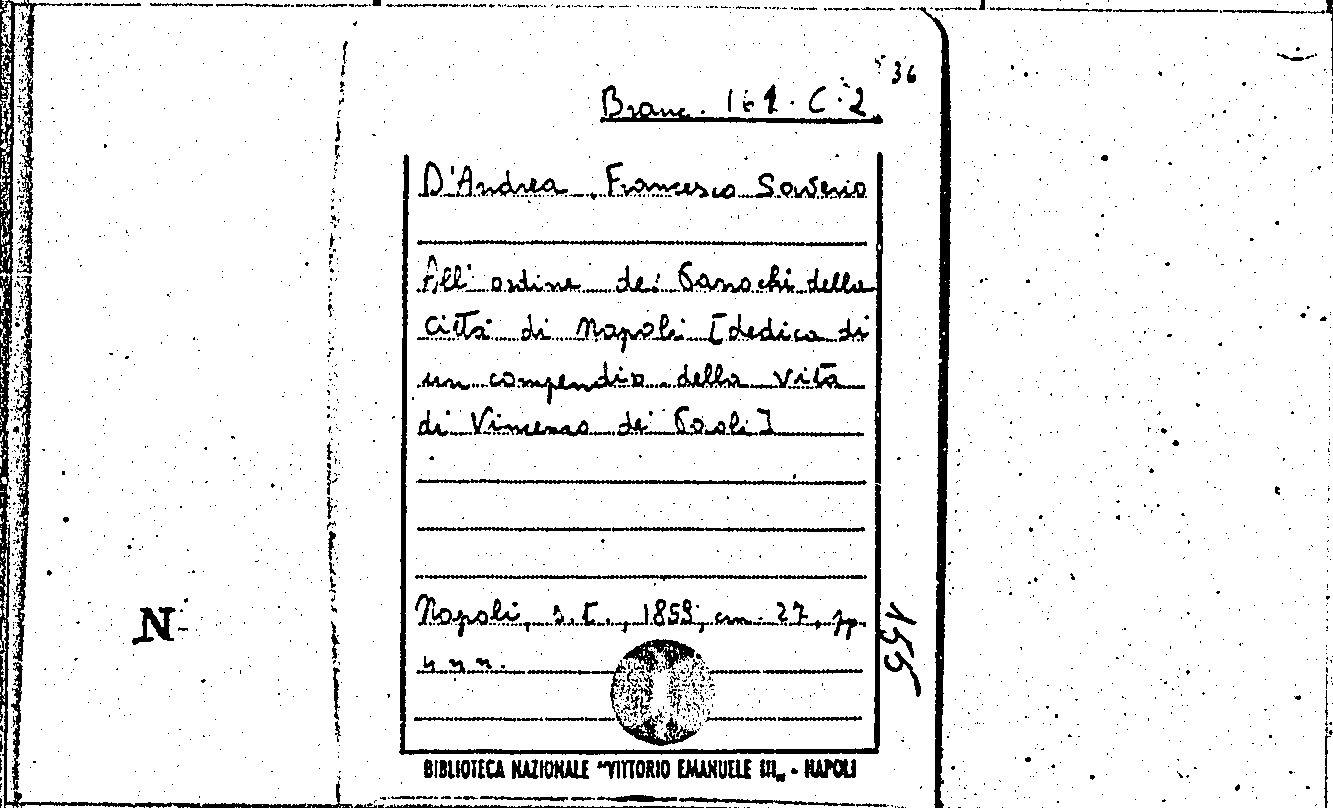 36
Branc. 161. C. 2
D'Andrea Francesco Saverio
All' ordine dei Parrochi della
città di Napoli [dedica di
un compendio della vita
di Vincenzo dei Paoli]
Napoli, s.t., 1859; cm. 27, pp.
n. n.
155
N
BIBLIOTECA NAZIONALE "VITTORIO EMANUELE III„ - NAPOLI